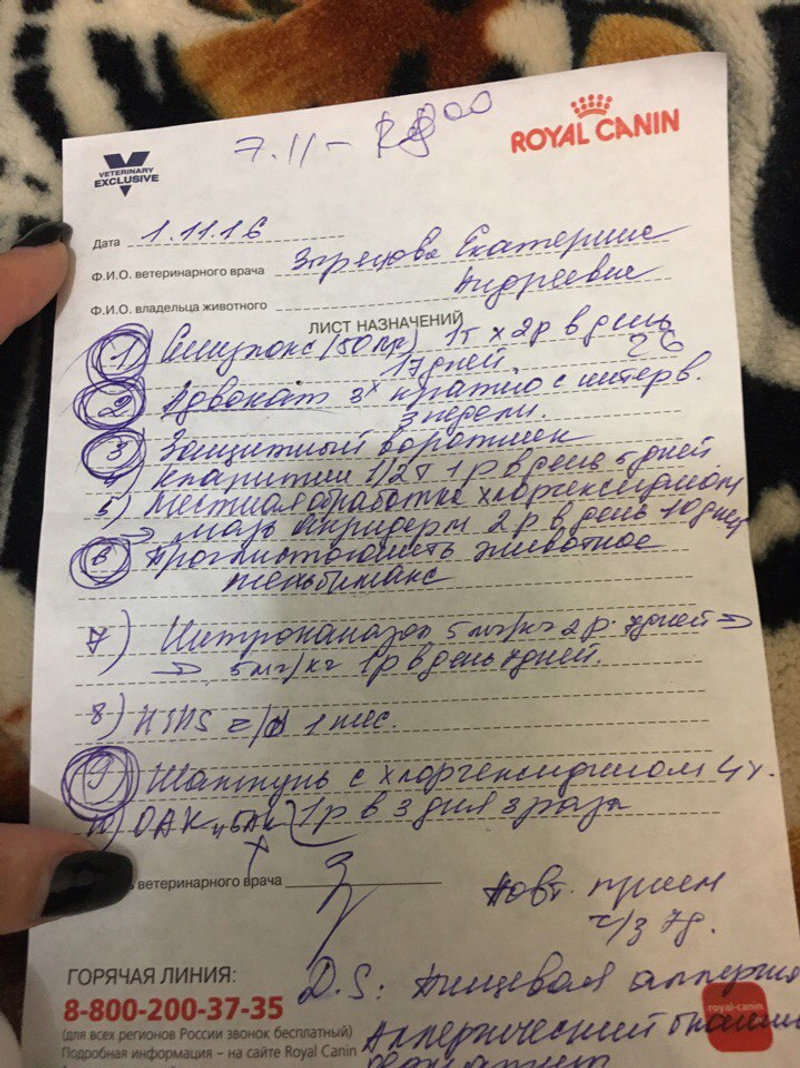 7.11 – 00
ROYAL CANIN
VETERINARY
EXCLUSIVE
Дата 1.11.16
Ф.И.О. ветеринарного врача Екатерина
Андреевна
Ф.И.О. владельца животного
ЛИСТ НАЗНАЧЕНИЙ
1 (50мг) 1т х 2р в день
дней.
2 Адвокат 3х кратно с интерв.
3 недели.
3 Защитный воротник
4) Кларитин 1/2т 1р в день 5 дней
5) Местная обработка хлоргексидином
→ мазь Акридерм 2р в день 10 дней
6 Проглистогонить животное
7) 5мг/кг 2р. 7 дней →
→ 5мг/кг 1р в день 7 дней.
8) 1 мес.
9) Шампунь с хлоргексидином
10) ОАК и БАК 1р в 3 дня 3 раза
ветеринарного врача
Повт. прием
ч/з 7д.
ГОРЯЧАЯ ЛИНИЯ:
D.S: Пищевая аллергия
8-800-200-37-35
royal-canin
(для всех регионов России звонок бесплатный)
Аллергический
Подробная информация – на сайте Royal Canin